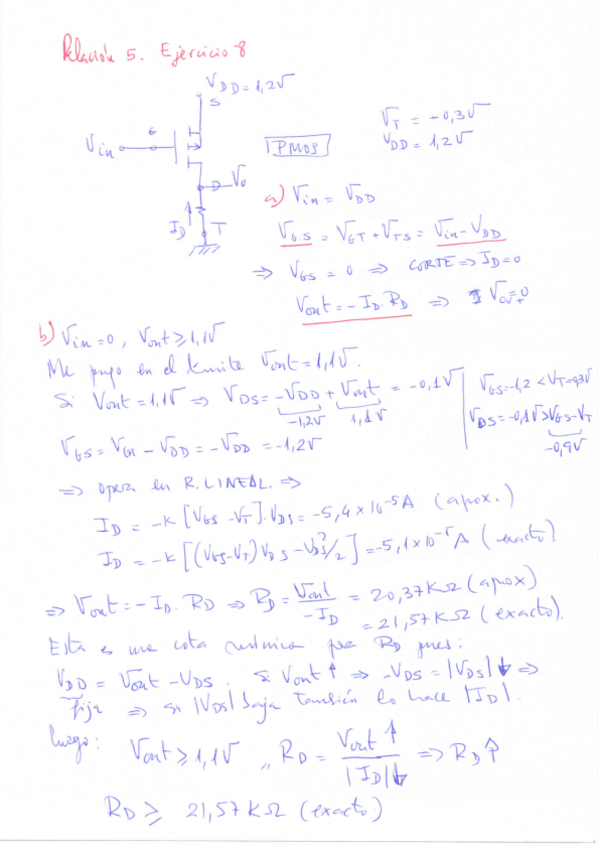 Relación 5. Ejercicio 8
VDD = 1,2V
S
G
Vin
PMOS
VT = -0,3V
VDD = 1,2V
D
Vo
ID
T
a) Vin = VDD
VGS = VGT + VTS = Vin - VDD
⇒ VGS = 0 ⇒ CORTE ⇒ ID = 0
Vout = -ID·RD ⇒ Vout = 0
b) Vin = 0, Vout ≥ 1,1V
Me pongo en el límite Vout = 1,1V.
Si Vout = 1,1V ⇒ VDS = -VDD + Vout = -0,1V
-1,2V 1,1V
VGS = Vin - VDD = -VDD = -1,2V
VGS = -1,2 < VT = -0,3V
VDS = -0,1V > VGS - VT
-0,9V
⇒ opera en R. LINEAL ⇒
ID = -K [VGS - VT]·VDS = -5,4 × 10⁻⁵ A (apox.)
ID = -K [(VGS - VT) VDS - VDS²/2] = -5,1 × 10⁻⁵ A (exacto)
⇒ Vout = -ID·RD ⇒ RD = Vout / -ID = 20,37 KΩ (apox)
= 21,57 KΩ (exacto).
Esta es una cota mínima para RD pues:
VDD = Vout - VDS. si Vout ↑ ⇒ -VDS = |VDS| ↓ ⇒
Fija ⇒ si |VDS| baja también lo hace |ID|.
luego: Vout ≥ 1,1V ,, RD = Vout ↑ / |ID| ↓ ⇒ RD ↑
RD ≥ 21,57 KΩ (exacto)